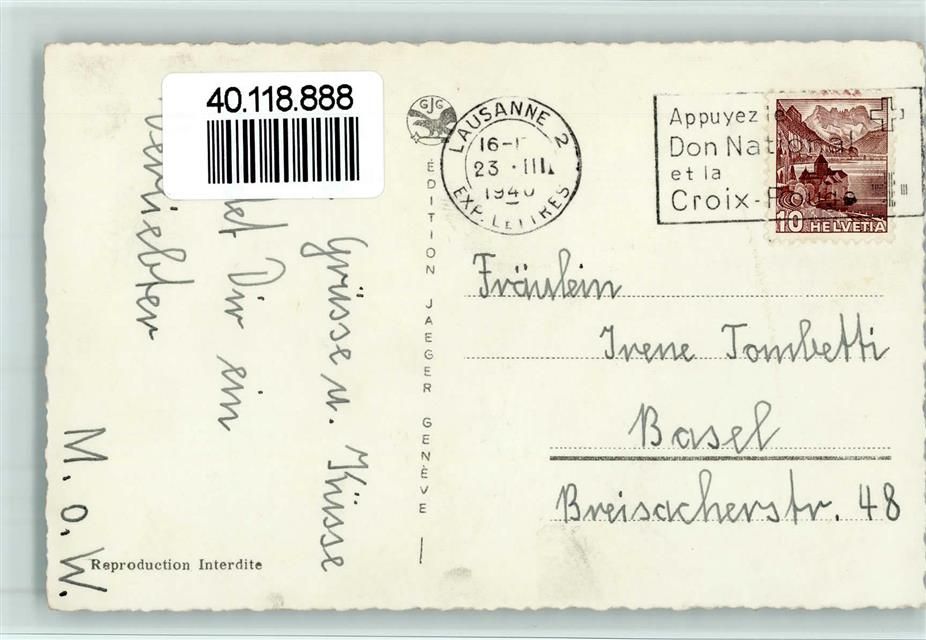 40.118.888
GJG
LAUSANNE 2
16-
23 · III
1940
EXP. LETTRES
Appuyez le
Don National
et la
Croix-Rouge
10 HELVETIA
ÉDITION JAEGER GENÈVE
Grüsse u. Küsse
Dir ein
M. O. W.
Fräulein
Irene Tombetti
Basel
Breisacherstr. 48
Reproduction Interdite